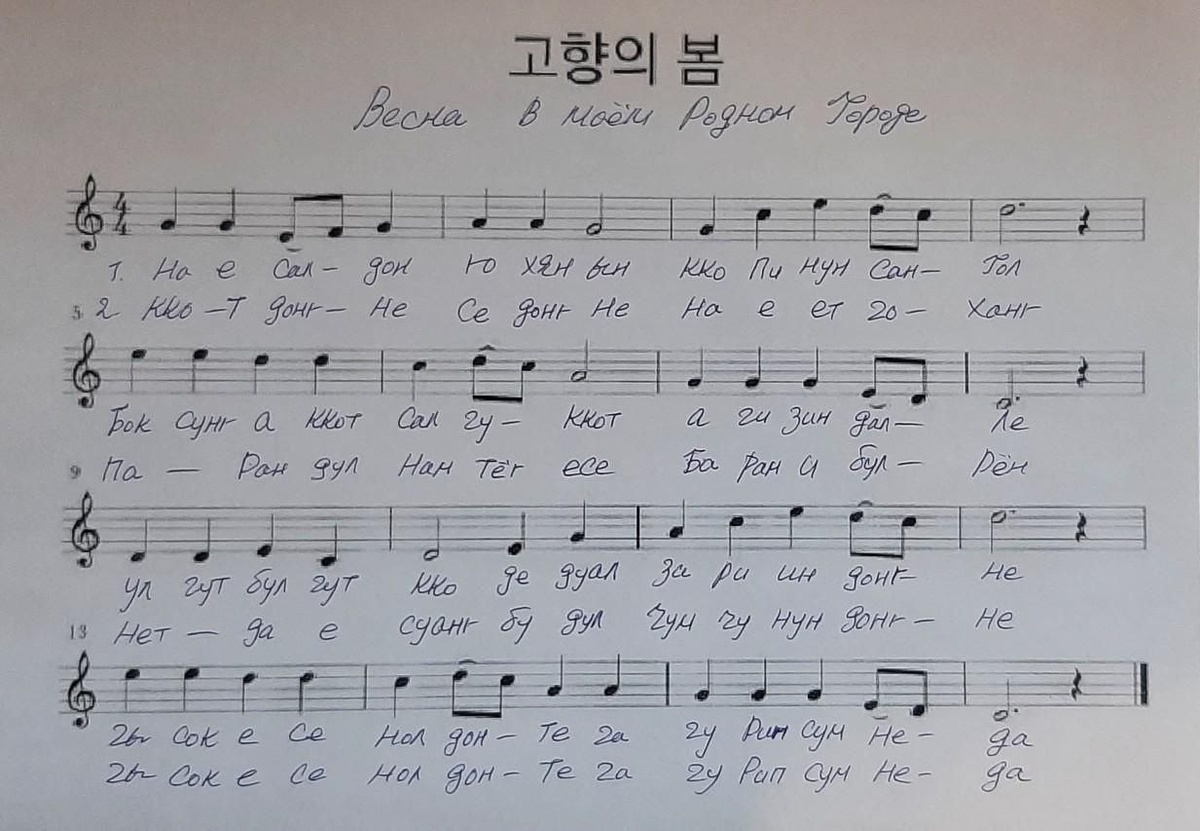 고향의 봄
Весна в моём Родном Городе
1. На е Сал- дон Ю хян ын кко Пи нун Сан- Гол
5 2 кко -т донг- Не Се донг Не На е ет го- ханг
Бок сунг а ккот Сал гу- ккот а ги зин дал- ле
9 Па - Ран дул Нан тёг есе Ба ран и бул- Рён
ул гут бул гут кко де дуал за ри ин донг- не
13 Нет - да е суанг бу дул Чум чу нун донг- не
гы сок е се нол дон- те га гу Рин сум не- да
гы сок е се нол дон- те га гу Рип сум не- да